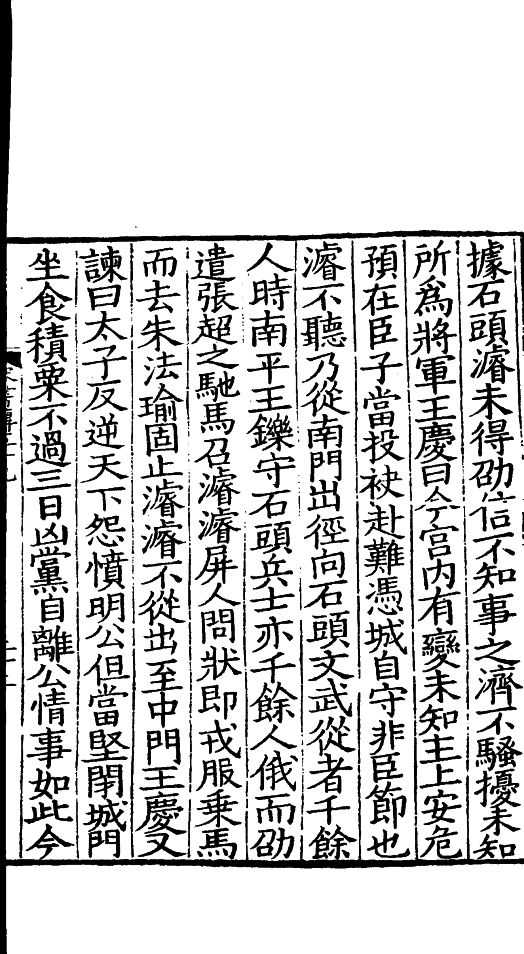 據石頭濬未得劭信不知事之濟不騷擾未知
所爲將軍王慶曰今宫内有變未知主上安危
預在臣子當投袂赴難憑城自守非臣節也
濬不聽乃從南門出徑向石頭文武從者千餘
人時南平王鑠守石頭兵士亦千餘人俄而劭
遣張超之馳馬召濬濬屏人問狀即戎服乗馬
而去朱法瑜固止濬濬不從出至中門王慶又
諫曰太子反逆天下怨憤明公但當堅閉城門
坐食積粟不過三日凶黨自離公情事如此今